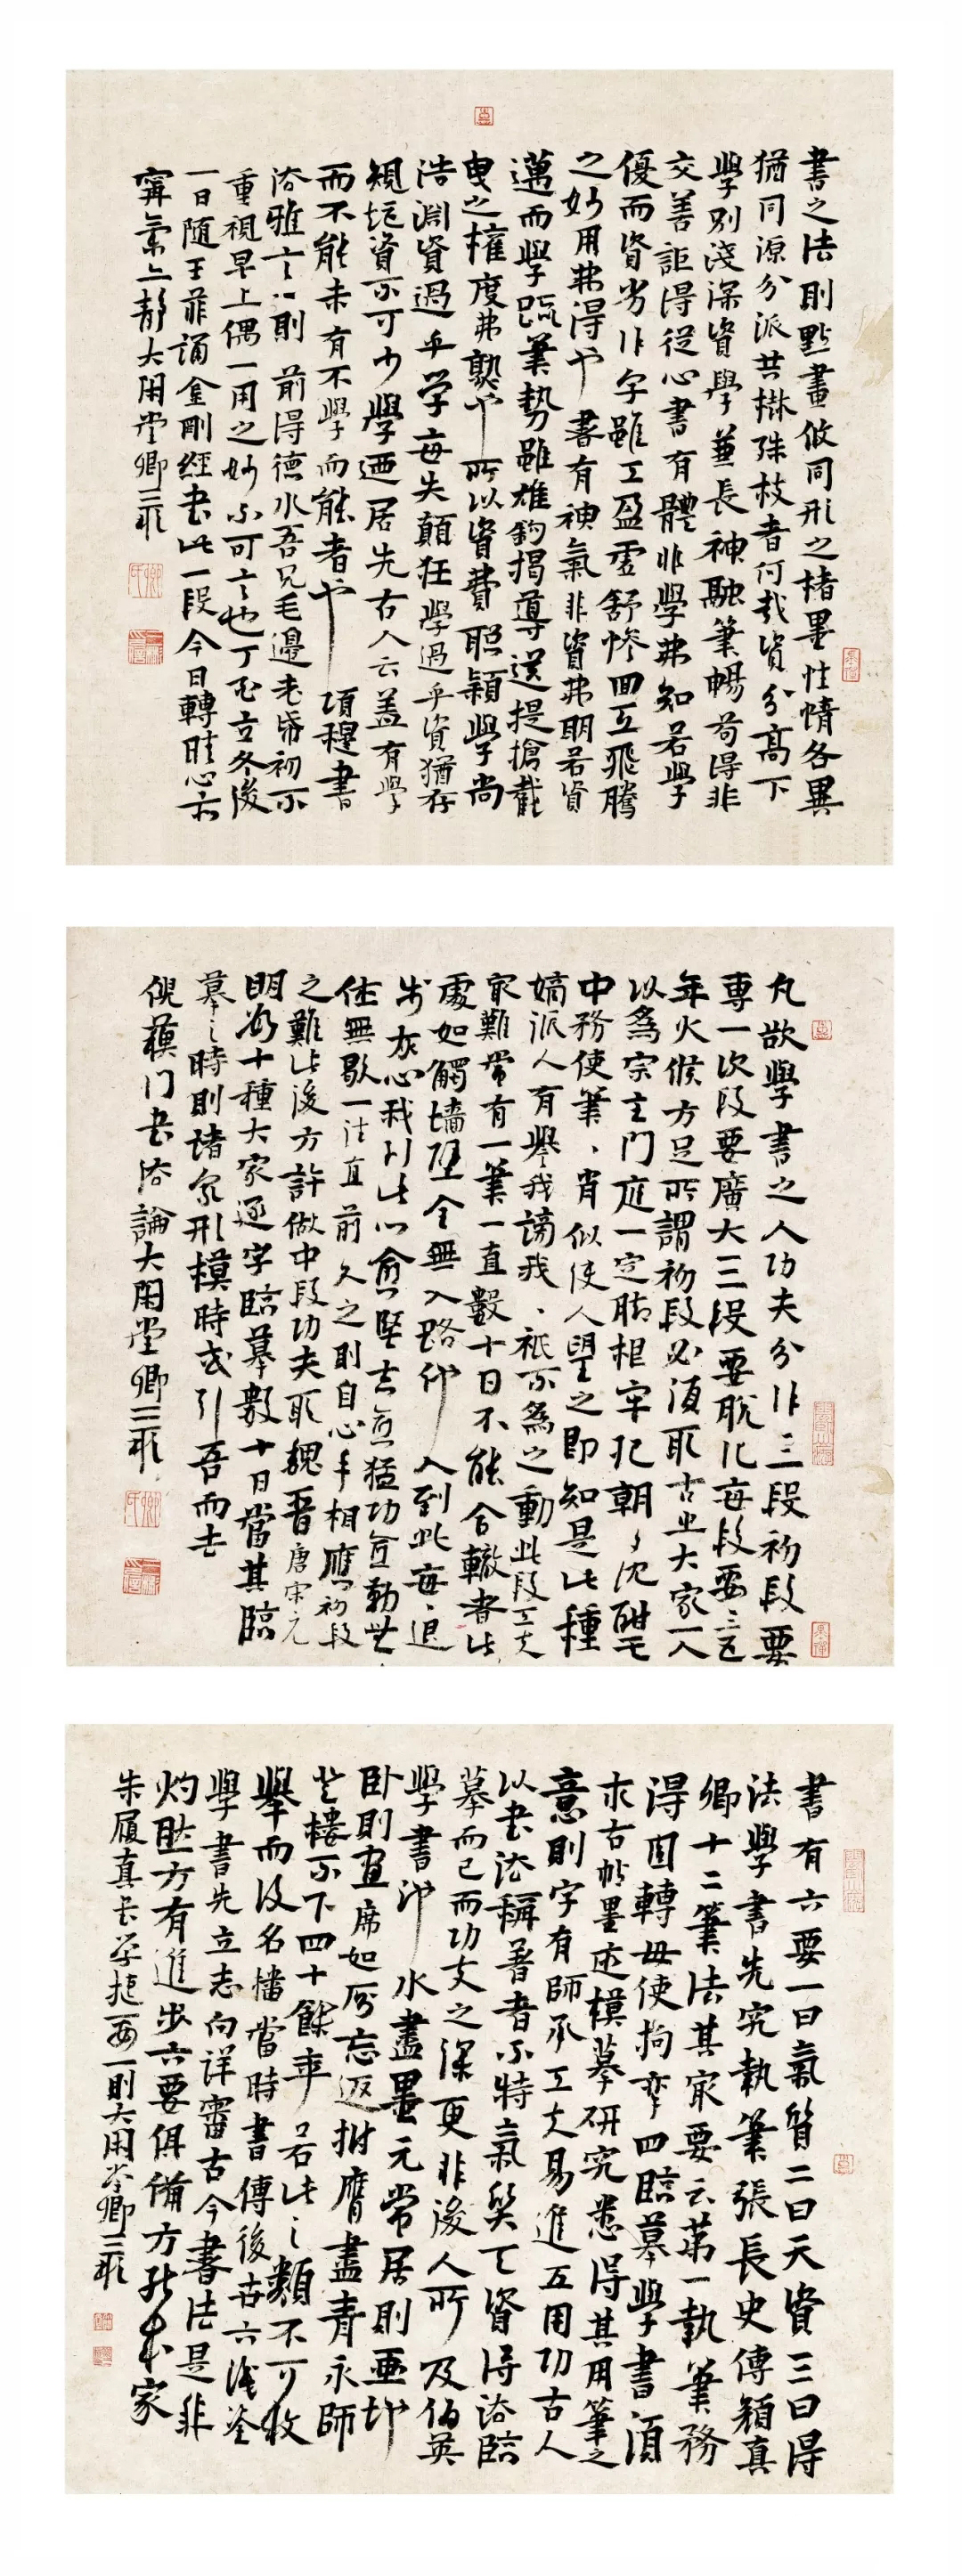 書之法則點畫攸同形之楮墨性情各異
猶同源分派共樹殊枝者何哉資分高下
學別淺深資學兼長神融筆暢苟得非
交善詎得從心書有體非學弗知若學
優而資劣作字雖工盈虛舒慘回互飛騰
之妙用弗得也書有神氣非資弗明若資
邁而學疏筆勢雖雄鉤揭導送提搶截
曳之權度弗熟也所以資貴聰穎學尚
浩淵資過乎学每失顛狂學過乎資猶存
規矩資不可少學迺居先古人云蓋有學
而不能未有不學而能者也 項穆書
法雅言一則 前得德水吾兄毛邊老帋初不
重視早上偶一用之妙不可言也丁酉立冬後
一日随王菲誦金剛經书此一段今日轉晴心亦
寧氣亦靜大用堂卿三
凡欲學書之人功夫分作三段初段要
專一次段要廣大三段要脫化每段要三五
年火候方足所謂初段必須取古之大家一人
以為宗主門庭一定腳相牢把朝〻沉酣其
中務使筆〻肖似使人望之即知是此種
嫡派人有譽我謗我〻祇不為之動此段工夫
最難常有一筆一直數十日不能合轍者此
處如觸墻壁全無入路他人到此每〻退
步灰心我到此心愈堅志愈猛功愈勤無
住無歇一往直前久之則自心手相應初段
之難此後方許做中段功夫取魏晋唐宋元
明數十種大家逐字臨摹數十日當其臨
摹之時則諸家形模時或引吾而去
倪蘇门书法論大用堂卿三
書有六要一曰氣質二曰天資三曰得
法學書先究執筆張長史傳顏真
卿十二筆法其最要云第一執筆務
得圓轉毋使拘攣四臨摹學書須
求古帖墨迹模摹研究悉得其用筆之
意則字有師承工夫易進五用功古人
以书法稱著者不特氣質天資得法臨
摹而已而功夫之深更非後人所及伯英
學書池水盡墨元常居則畫地
卧則畫席如厠忘返拊膺盡青永師
登樓不下四十餘年若此之類不可枚
舉而後名播當時書傳後世六識鉴
學書先立志向詳審古今書法是非
灼然方有進步六要俱備方能成家
朱履真书学捷要一則大用堂卿三